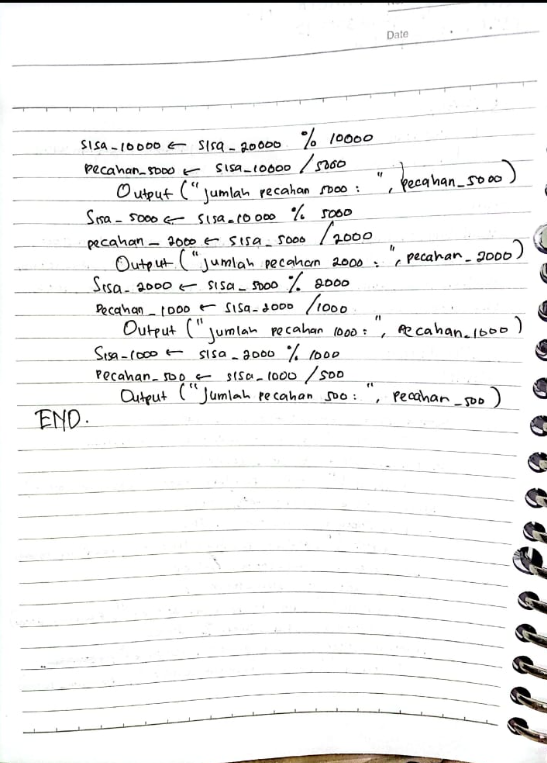 Date
sisa_10000 ← sisa_20000 % 10000
pecahan_5000 ← sisa_10000 / 5000
Output ("jumlah pecahan 5000 : ", pecahan_5000)
Sisa_5000 ← sisa_10000 % 5000
pecahan_2000 ← sisa_5000 / 2000
Output ("jumlah pecahan 2000 : ", pecahan_2000)
Sisa_2000 ← sisa_5000 % 2000
Pecahan_1000 ← sisa_2000 / 1000
Output ("jumlah pecahan 1000 : ", Pecahan_1000)
Sisa_1000 ← sisa_2000 % 1000
Pecahan_500 ← sisa_1000 / 500
Output ("Jumlah pecahan 500 : ", Pecahan_500)
END.